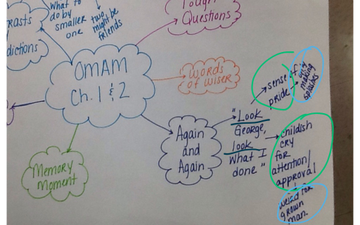 rasts
dictions
What to
do by
smaller
one
two
might be
friends
Tough
Questions
OMAM
Ch. 1 & 2
Words
of Wiser
Again
and
Again
Memory
Moment
"Look
George,
look
What I
done"
sense of
pride
making
sparks
childish
cry
for
attention/
approval
weird for
grown
man.